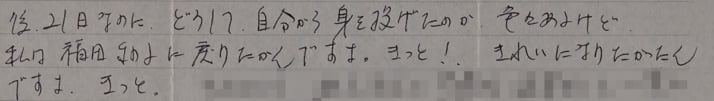 後、21日なのに、どうして、自分から身を投げたのか、色々あるけど
私は福田 に戻りたかんですよ。きっと!、きれいになりたかったん
ですよ、きっと。